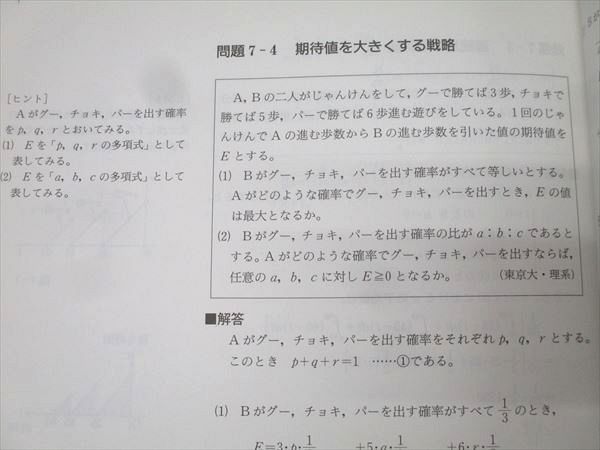 問題7-4 期待値を大きくする戦略
[ヒント]
Aがグー，チョキ，パーを出す確率
をp，q，rとおいてみる。
(1) Eを「p，q，rの多項式」として
表してみる。
(2) Eを「a，b，cの多項式」として
表してみる。
A，Bの二人がじゃんけんをして，グーで勝てば3歩，チョキで
勝てば5歩，パーで勝てば6歩進む遊びをしている。1回のじゃ
んけんでAの進む歩数からBの進む歩数を引いた値の期待値を
Eとする。
(1) Bがグー，チョキ，パーを出す確率がすべて等しいとする。
Aがどのような確率でグー，チョキ，パーを出すとき，Eの値
は最大となるか。
(2) Bがグー，チョキ，パーを出す確率の比がa：b：cであると
する。Aがどのような確率でグー，チョキ，パーを出すならば，
任意のa，b，cに対しE≧0となるか。 (東京大・理系)
■解答
Aがグー，チョキ，パーを出す確率をそれぞれp，q，rとする。
このとき p+q+r=1 ……①である。
(1) Bがグー，チョキ，パーを出す確率がすべて1/3のとき，
E=3・p・1 +5・q・1 +6・r・1